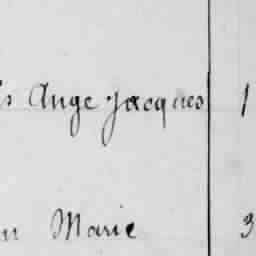 Ange Jacques 1
Marie 3